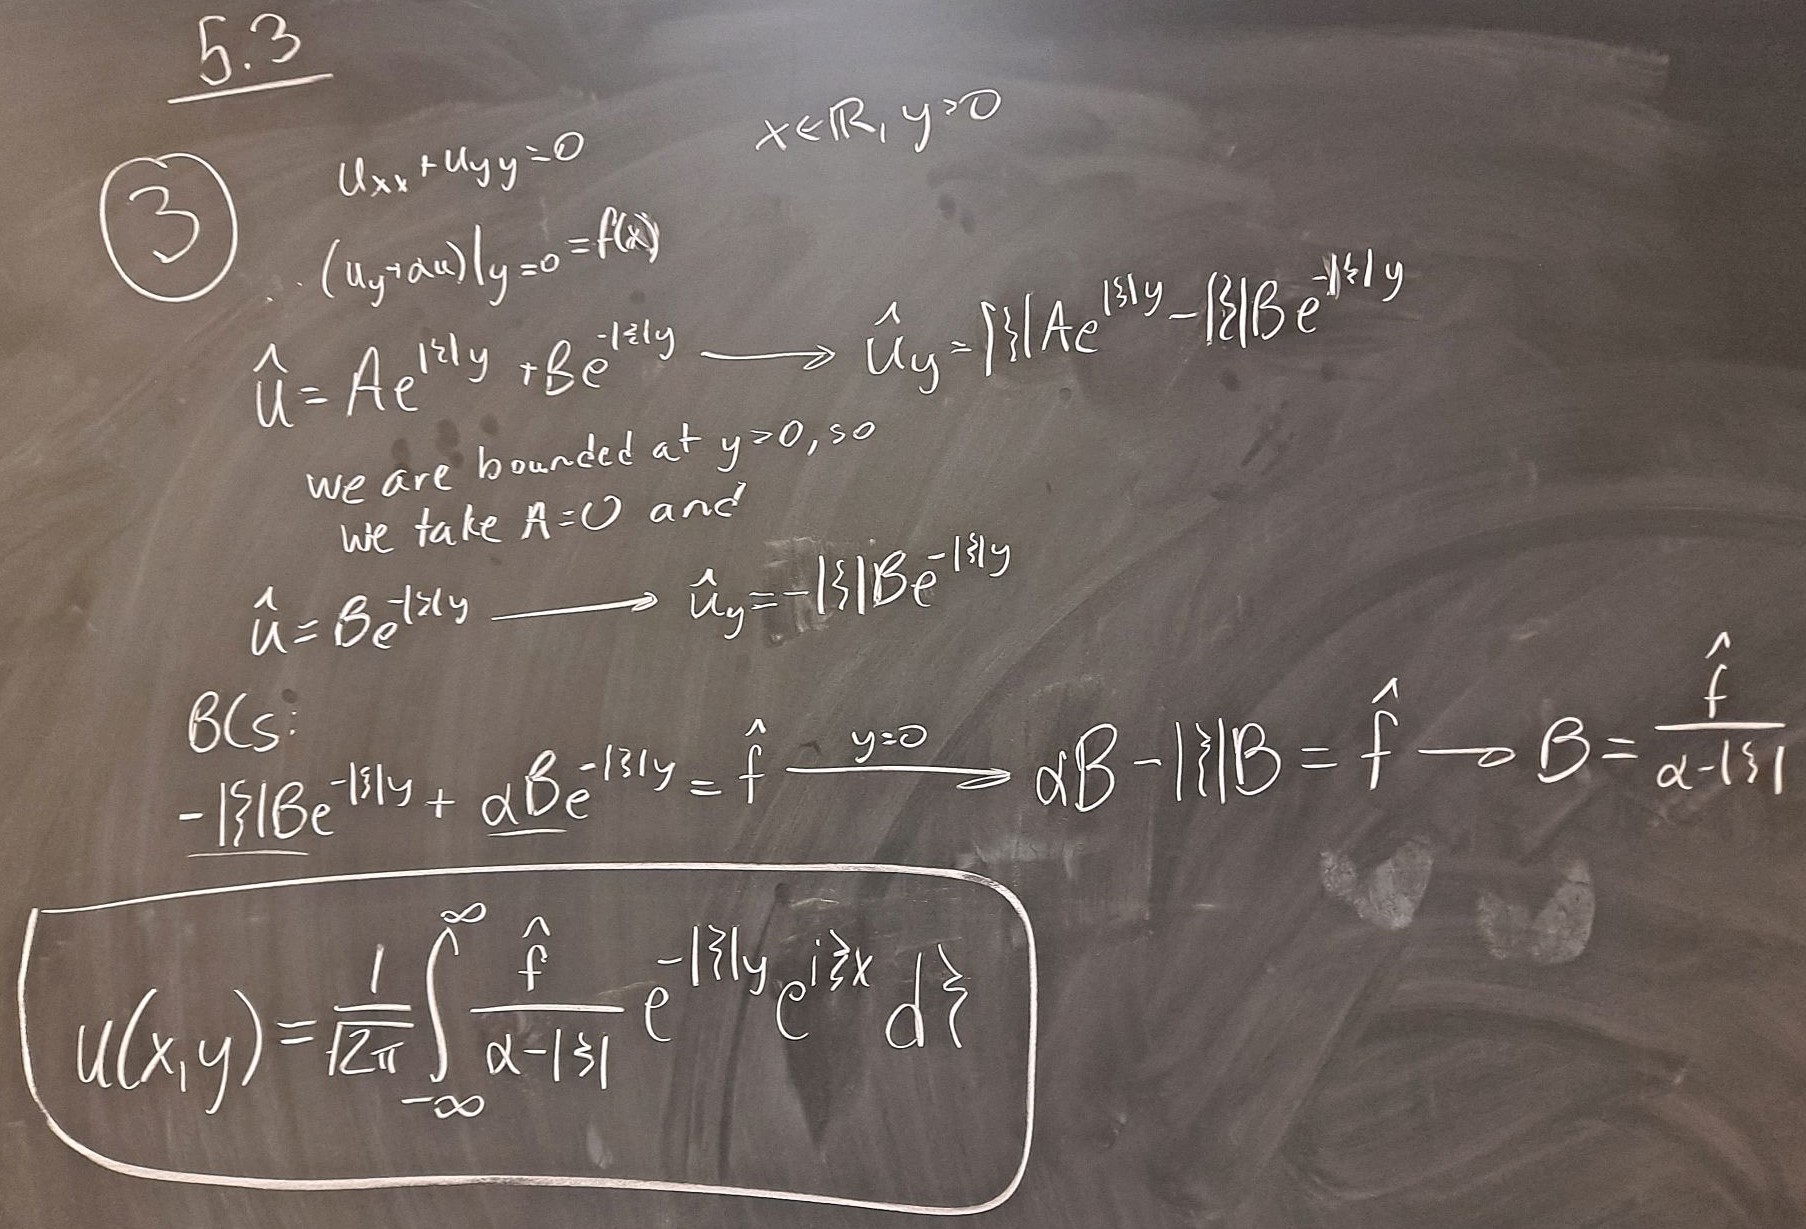 5.3
③ u_{xx} + u_{yy} = 0    x ∈ ℝ, y > 0
(u_y + αu)|_{y=0} = f(x)
û = Ae^{|ξ|y} + Be^{-|ξ|y} ⟶ û_y = |ξ|Ae^{|ξ|y} - |ξ|Be^{-|ξ|y}
we are bounded at y>0, so
we take A=0 and
û = Be^{-|ξ|y} ⟶ û_y = -|ξ|Be^{-|ξ|y}
BCs:
-|ξ|Be^{-|ξ|y} + αBe^{-|ξ|y} = f̂ ⟶^{y=0} αB - |ξ|B = f̂ ⟶ B = \frac{f̂}{α-|ξ|}
u(x,y) = \frac{1}{\sqrt{2π}} ∫_{-∞}^{∞} \frac{f̂}{α-|ξ|} e^{-|ξ|y} e^{iξx} dξ